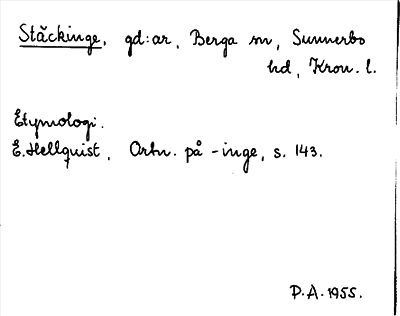 Stäckinge, gd:ar, Berga sn, Sunnerbo
hd, Kron. l.
Etymologi.
E. Hellquist, Ortn. på -inge, s. 143.
P.A. 1955.